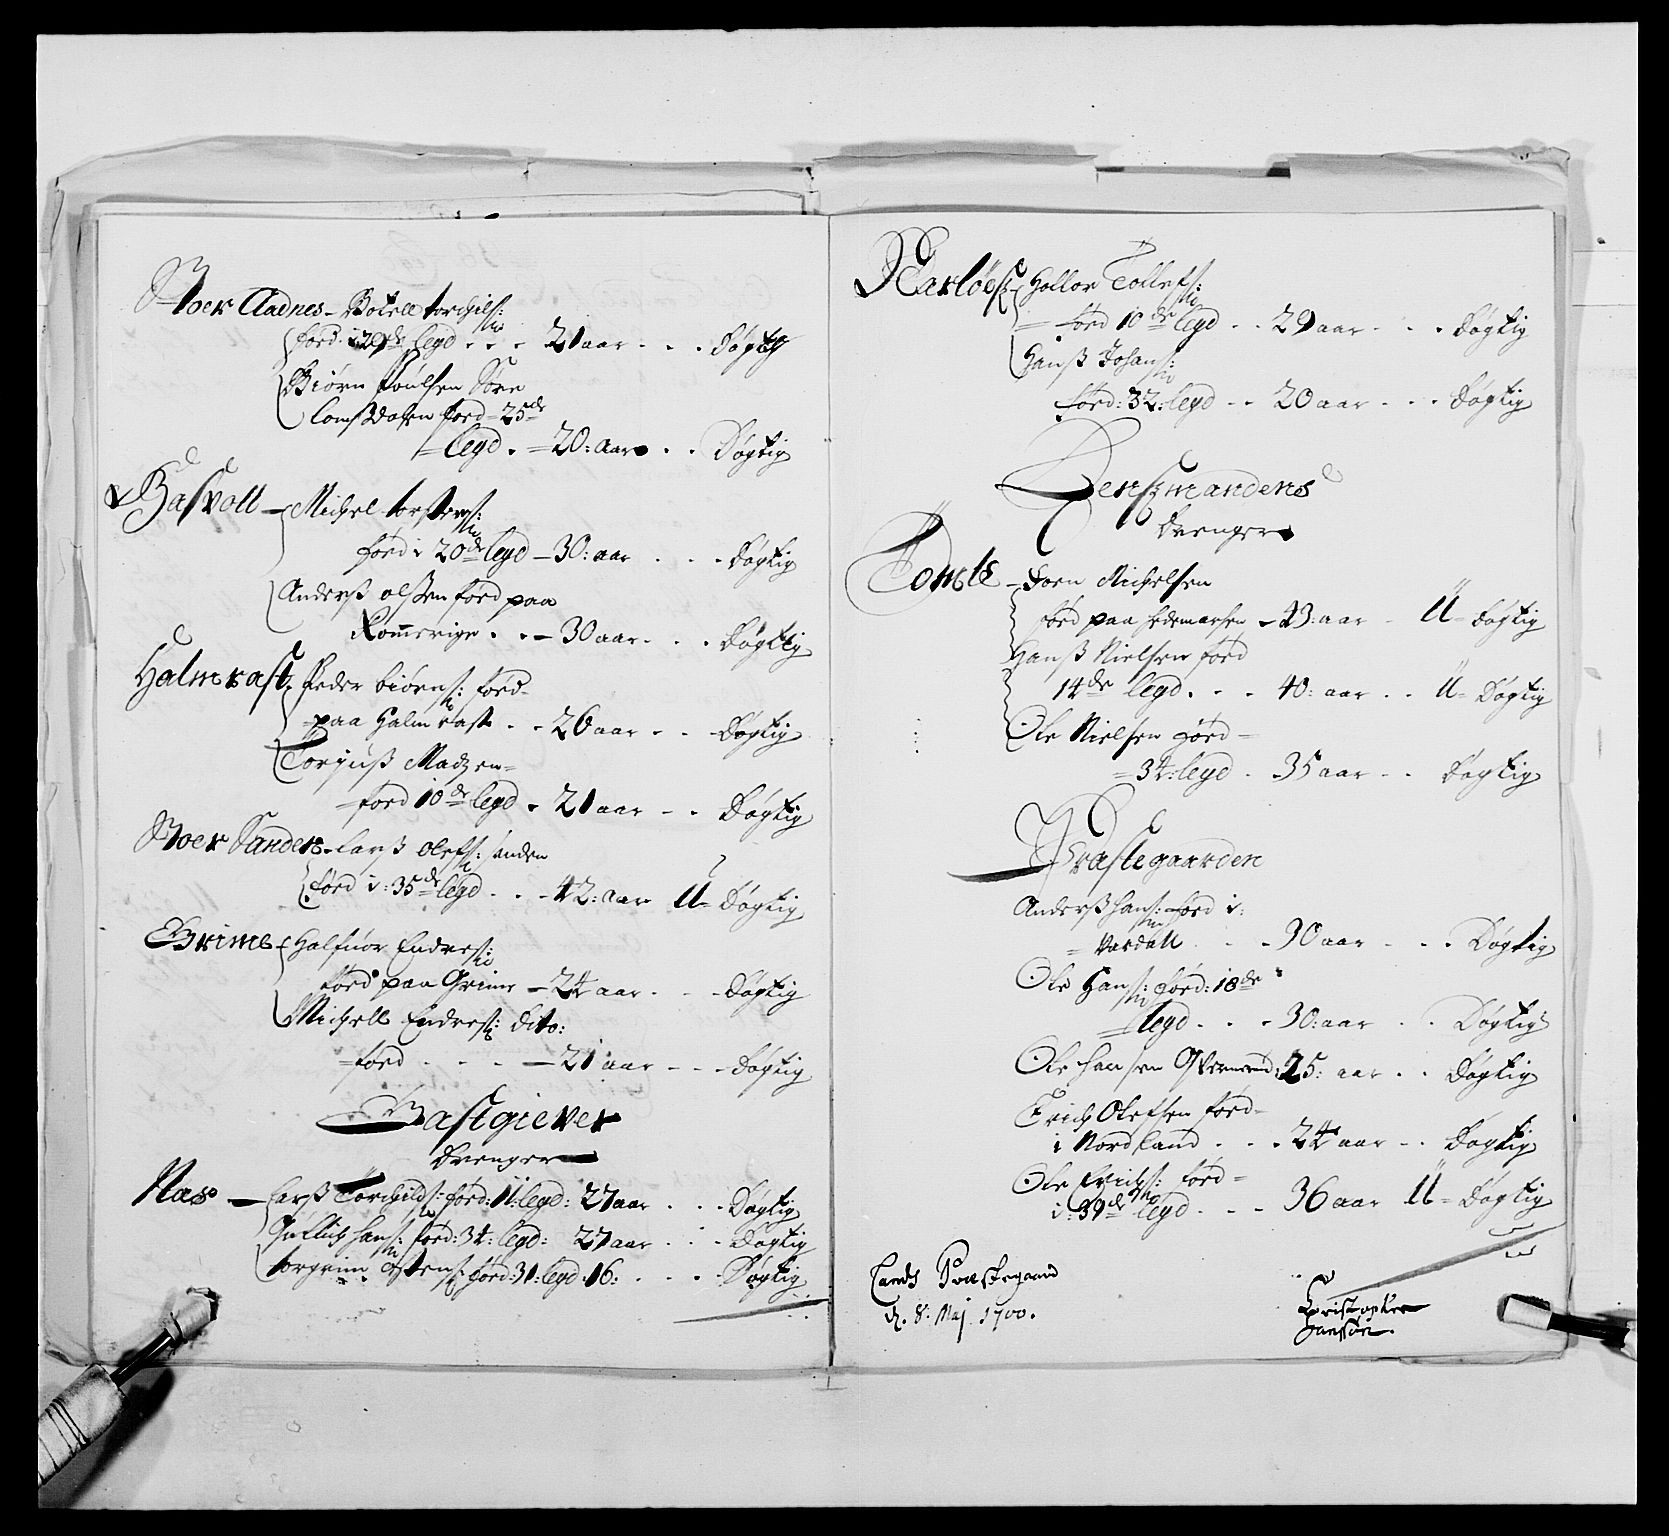 Noer Aadnes - Botell torchils:
førd i 29de legd . . . 21 aar . . . Døgtig
Biørn Poulsen
førd = 25de
= legd . = 20: aar . . Døgtig
Basvoll — Michel torstens:
førd i 20de legd — 30: aar . . . Døgtig
Anderß olßen førd paa
Rommerige . . — 30 aar . . . Døgtig
Halmrast. Peder biørns: førd
= paa Halmrast . . - 26 aar . . - Døgtig
Torjuß Madzen =
= førd 10de legd . 21 aar - . Døgtig
Noer Sanden - Larß Olefs:
førd i: 35de legd . . - 42: aar U= Døgtig
Grime - Halfuor Endres:
førd paa Grime — 24 aar . . - Døgtig
Michell Endres: dito:
= førd . . . — 21 aar - - - Døgtig
Gastgiever
Drenger —
Næs — Larß Torchilds: førd: 11: legd: 27 aar . . . Døgtig
hans: førd: 34: legd: 27 aar . . . Døgtig
torgrim ostens: førd: 31: legd . 16: . . . . Døgtig
Karløes Hallor Tollefs:
= førd 10de legd . . 29 aar . . . Døgtig
Hanß Johans:
førd: 32: legd . . 20 aar . . . Døgtig
Lensmandens
Drenger
Tomle — Michelsen
førd paa hedemarken - 43: aar - U= døgtig
Hanß Nielsen førd
14de legd . . . 40: aar . . U= Døgtig
Ole Nielsen førd =
= 34: legd . 35 aar . . Døgtig
Præstegaarden
Anderß Hans: førd i:
= Vardall . . - 30 aar . . . Døgtig
Ole Hans: førd: 18de
= legd . . . 30: aar . . Døgtig
Ole Hansen 25: aar . . Døgtig
Erich Olefsen førd =
i Nordland . . . 24 aar . . Døgtig
Ole Erichs: førd =
i: 39de legd . . . 36 aar U= Døgtig
Lands Præstegaard
d. 8. Maj 1700.
Christopher
Hanssøn.